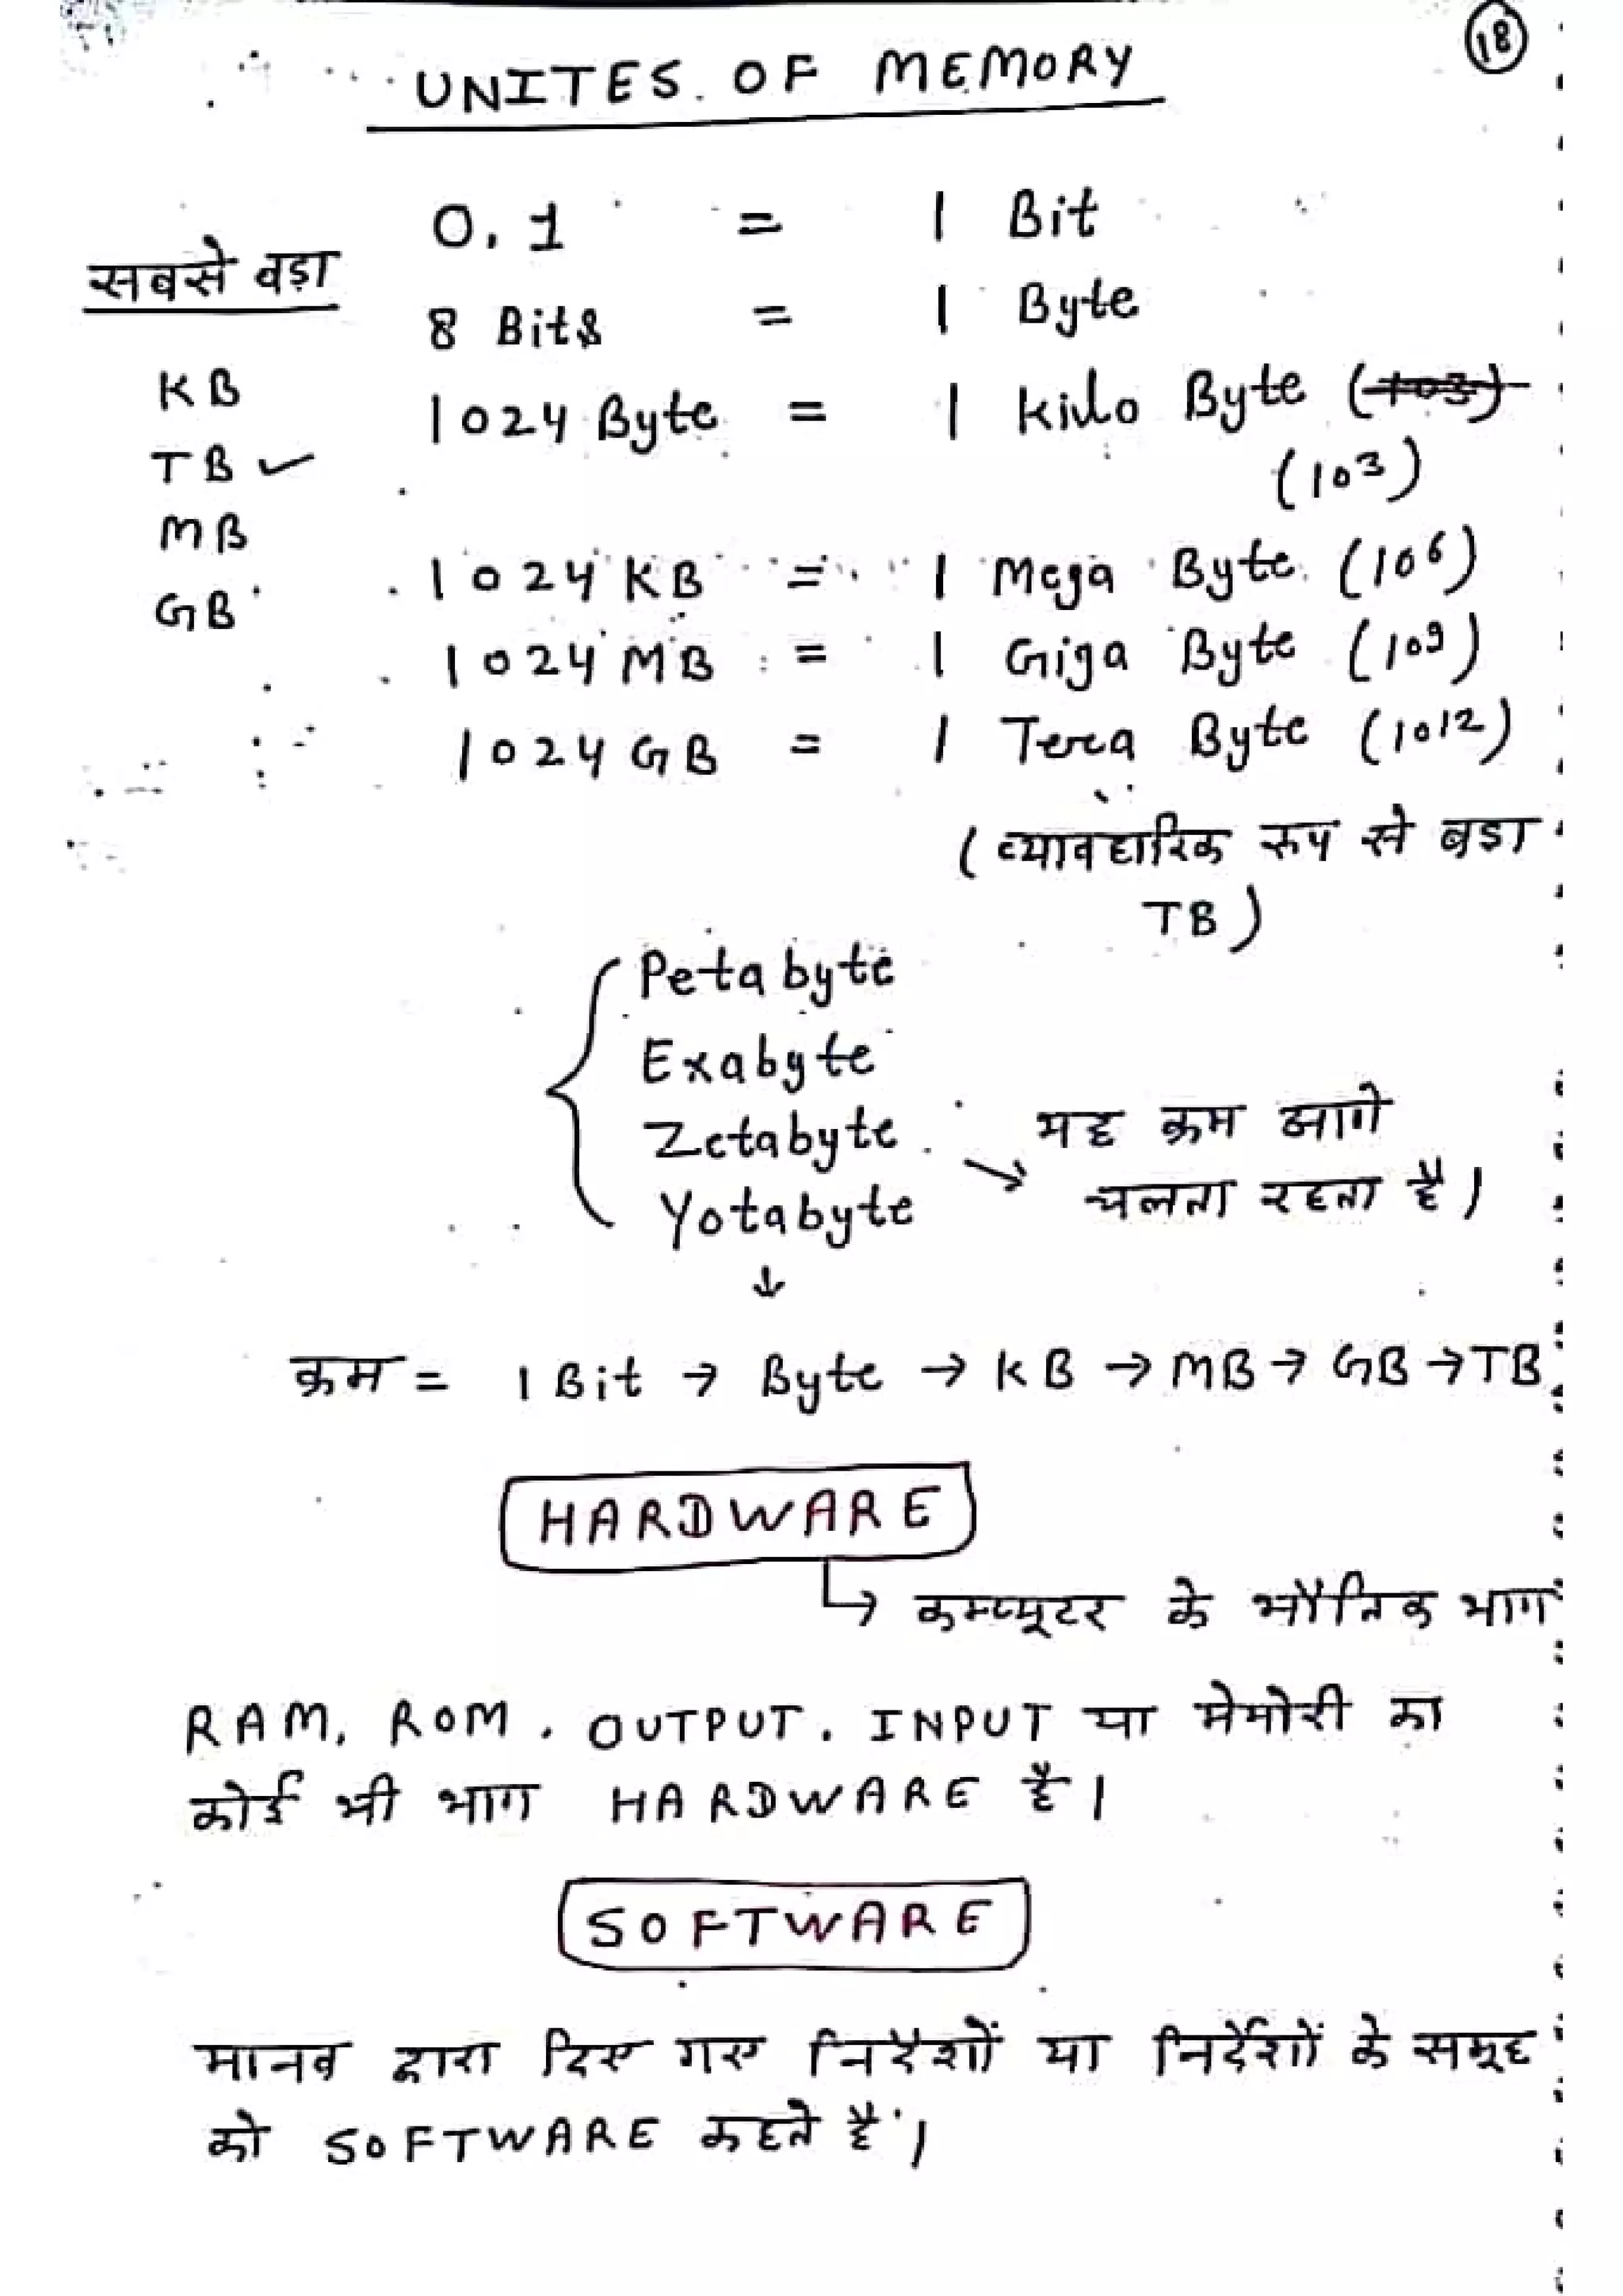 18
UNITES OF MEMORY
0, 1 = 1 Bit
सबसे बड़ा
8 Bits = 1 Byte
KB
1024 Byte = 1 Kilo Byte (103)
TB ✓
(10³)
MB
1024 KB = 1 Mega Byte (10⁶)
GB
1024 MB = 1 Giga Byte (10⁹)
1024 GB = 1 Tera Byte (10¹²)
(व्यावहारिक रूप से बड़ा
TB)
Petabyte
Exabyte
Zetabyte → यह क्रम आगे
चलता रहता है।
Yotabyte
↓
क्रम = 1 Bit → Byte → KB → MB → GB → TB
HARDWARE
↳ कम्प्यूटर के भौतिक भाग
RAM, ROM, OUTPUT, INPUT या मेमोरी का
कोई भी भाग HARDWARE है।
SOFTWARE
मानव द्वारा दिए गए निर्देशों या निर्देशों के समूह
को SOFTWARE कहते है।